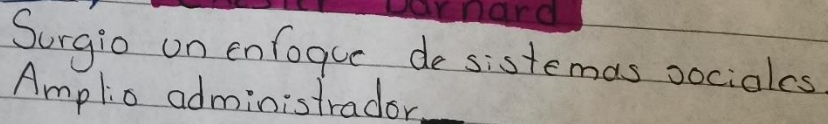 Barnard
Surgio un enfoque de sistemas sociales.
Amplio administrador